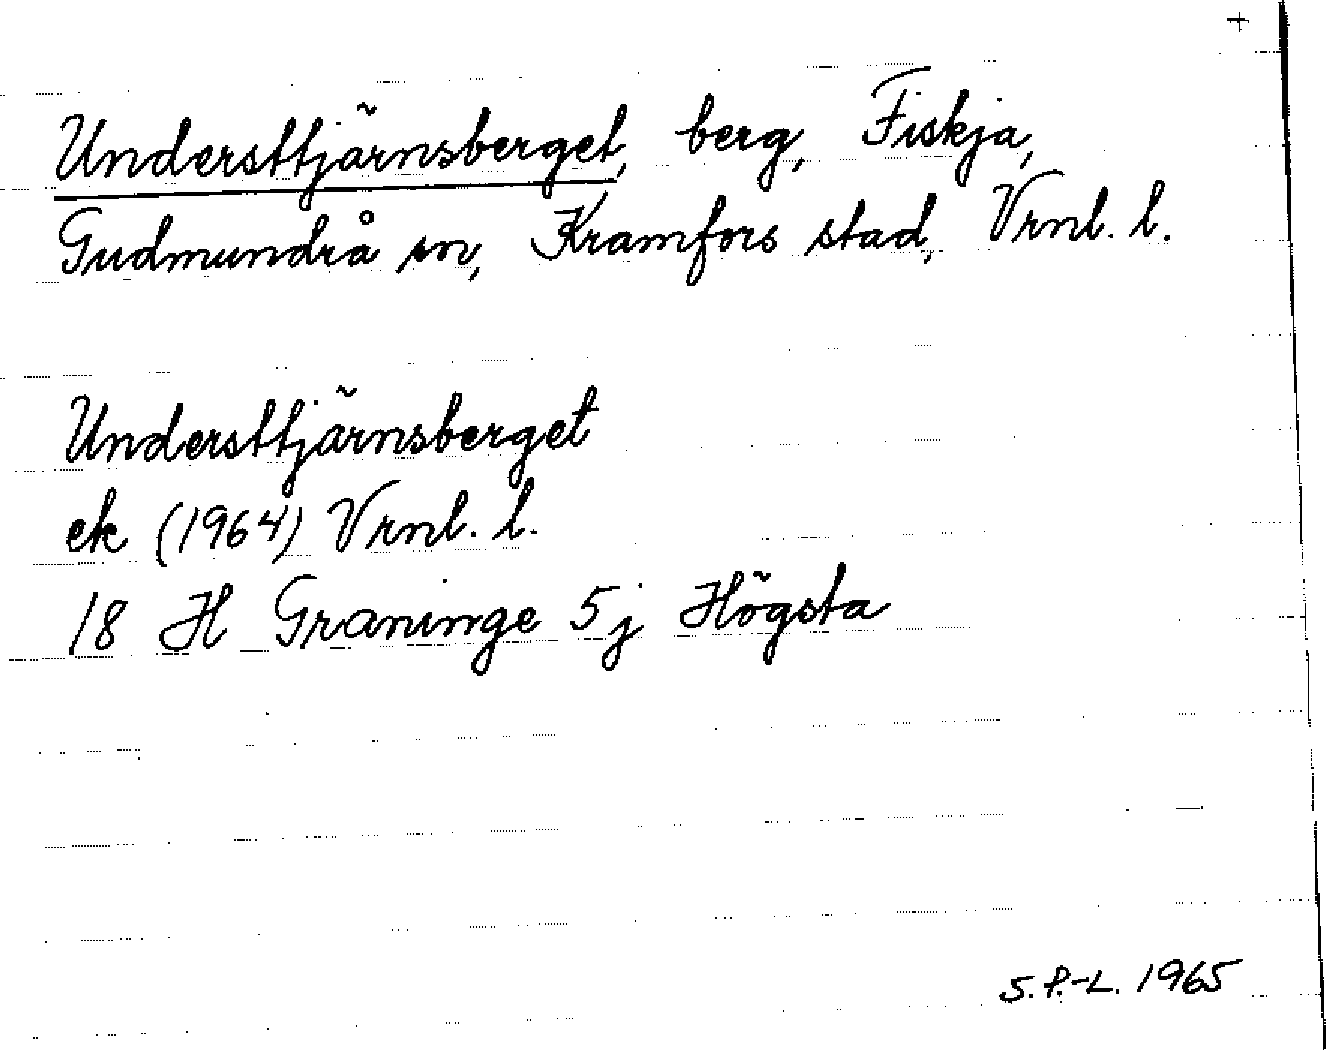 +
Understtjärnsberget, berg, Fiskja,
Gudmundrå sn, Kramfors stad, Vrnl. l.
Understtjärnsberget
ek (1964) Vrnl. l.
18 H Graninge 5j Högsta
S.P.-L. 1965